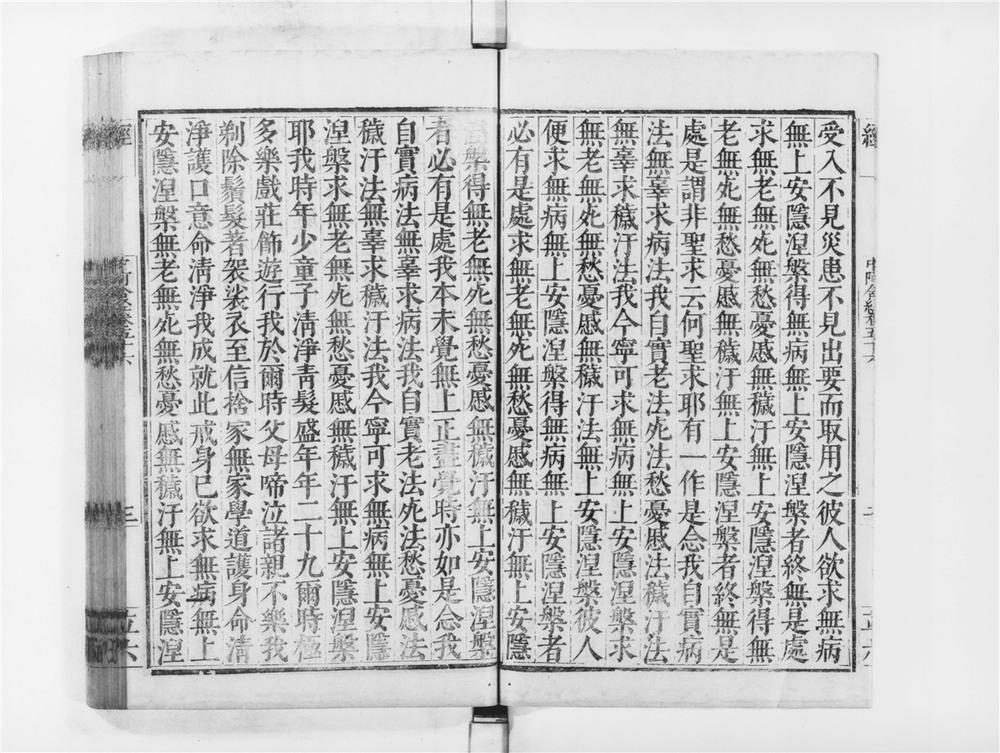 經 中阿含經卷五十六
受入不見災患不見出要而取用之彼人欲求無病
無上安隱涅槃得無病無上安隱涅槃者終無是處
求無老無死無愁憂慼無穢汙無上安隱涅槃得無
老無死無愁憂慼無穢汙無上安隱涅槃者終無是
處是謂非聖求云何聖求耶有一作是念我自實病
法無辜求病法我自實老法死法愁憂慼法穢汙法
無辜求穢汙法我今寧可求無病無上安隱涅槃求
無老無死無愁憂慼無穢汙法無上安隱涅槃彼人
便求無病無上安隱涅槃得無病無上安隱涅槃者
必有是處求無老無死無愁憂慼無穢汙無上安隱
涅槃得無老無死無愁憂慼無穢汙無上安隱涅槃
者必有是處我本未覺無上正盡覺時亦如是念我
自實病法無辜求病法我自實老法死法愁憂慼法
穢汙法無辜求穢汙法我今寧可求無病無上安隱
涅槃求無老無死無愁憂慼無穢汙無上安隱涅槃
耶我時年少童子清淨青髮盛年年二十九爾時極
多樂戲莊飾遊行我於爾時父母啼泣諸親不樂我
剃除鬚髮著袈裟衣至信捨家無家學道護身命清
淨護口意命清淨我成就此戒身已欲求無病無上
安隱涅槃無老無死無愁憂慼無穢汙無上安隱涅
經 三 五六